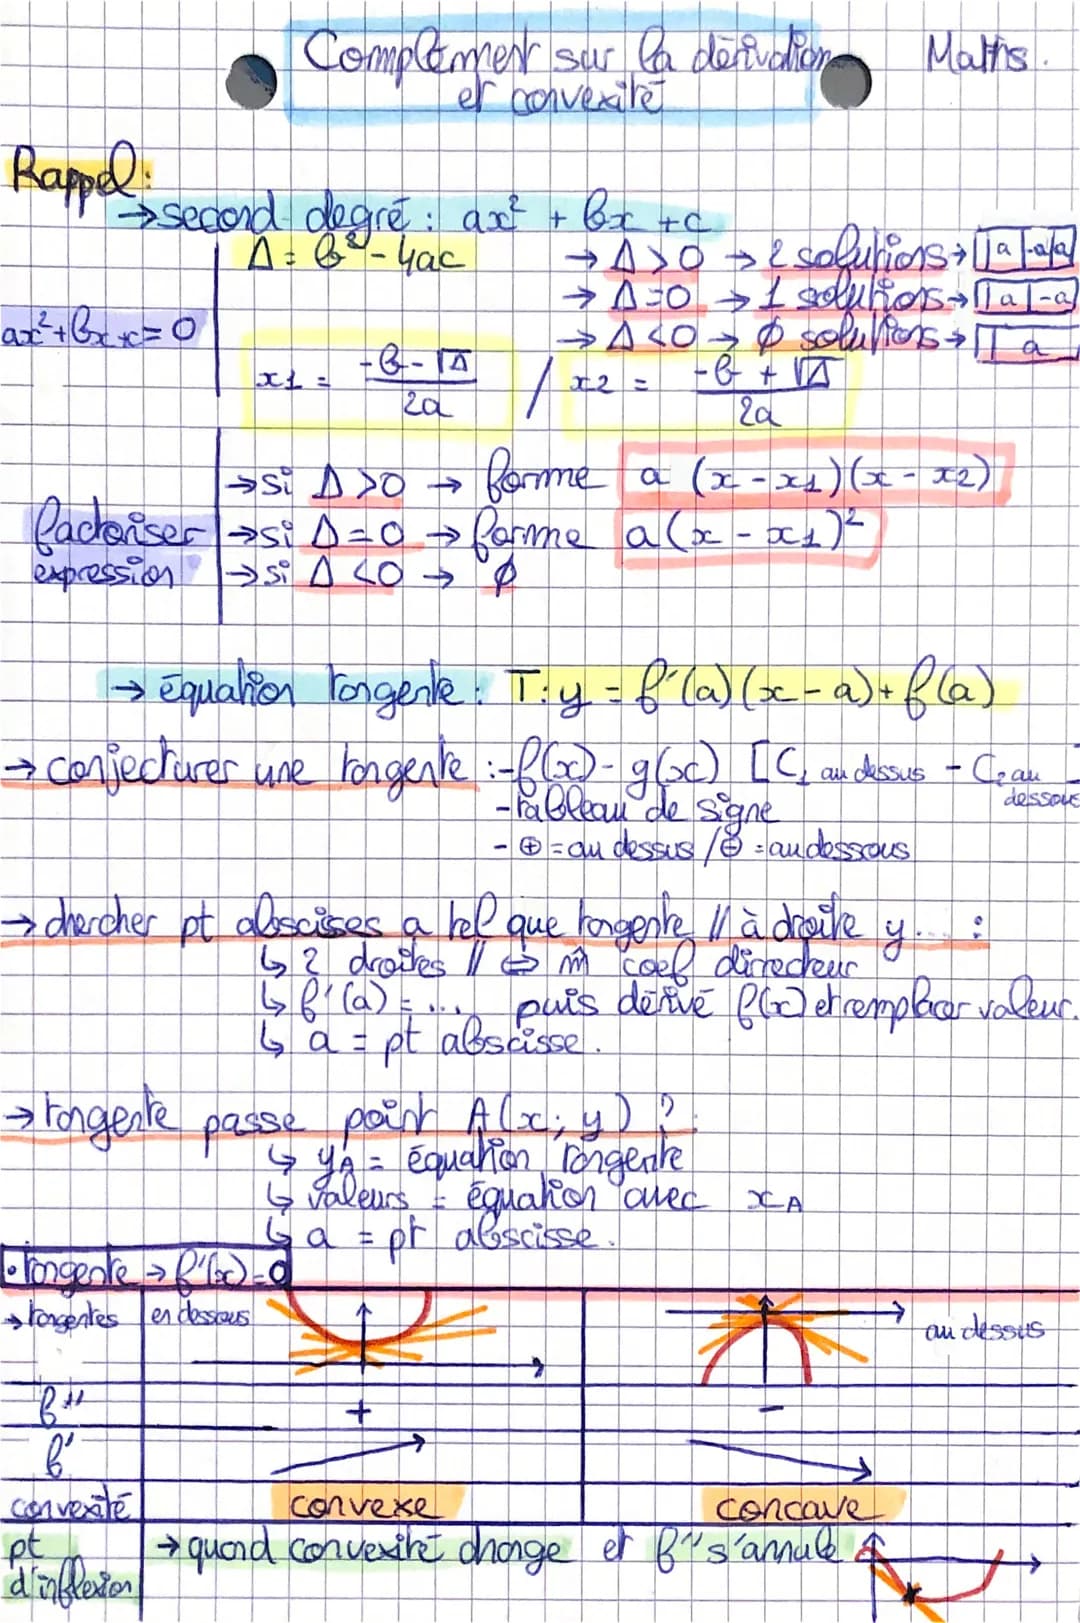 Complément sur la dérivation
et convexité
Maths.
Rappel:
→ second degré : ax² + bx + c
Δ = b² - 4ac
→ Δ > 0 → 2 solutions → | a | -a | a
→ Δ = 0 → 1 solutions → | a | -a
→ Δ < 0 → ∅ solutions → | a
ax² + bx + c = 0
x1 = (-b - √Δ)/2a / x2 = (-b + √Δ)/2a
factoriser expression
→ si Δ > 0 → forme a (x - x1)(x - x2)
→ si Δ = 0 → forme a(x - x1)²
→ si Δ < 0 → ∅
→ équation tangente : T: y = f'(a)(x - a) + f(a)
→ conjecturer une tangente : - f(x) - g(x) [C1 au dessus - C2 au dessous
- tableau de signe
- ⊕ = au dessus / ⊖ = au dessous
→ chercher pt abscisses a tel que tangente // à droite y... :
↳ 2 droites // ⇔ m̂ coef dirrecteur
↳ f'(a) = ... puis dérivé f(x) et remplacer valeur.
↳ a = pt abscisse.
→ tangente passe point A(x; y) ?
↳ yA = équation tangente
↳ valeurs = équation avec xA
↳ a = pt abscisse.
• Tangente → f'(x) = 0
→ tangentes en dessous
au dessus
f'' + -
f'
convexité convexe concave
pt d'inflexion → quand convexité change et f'' s'annule